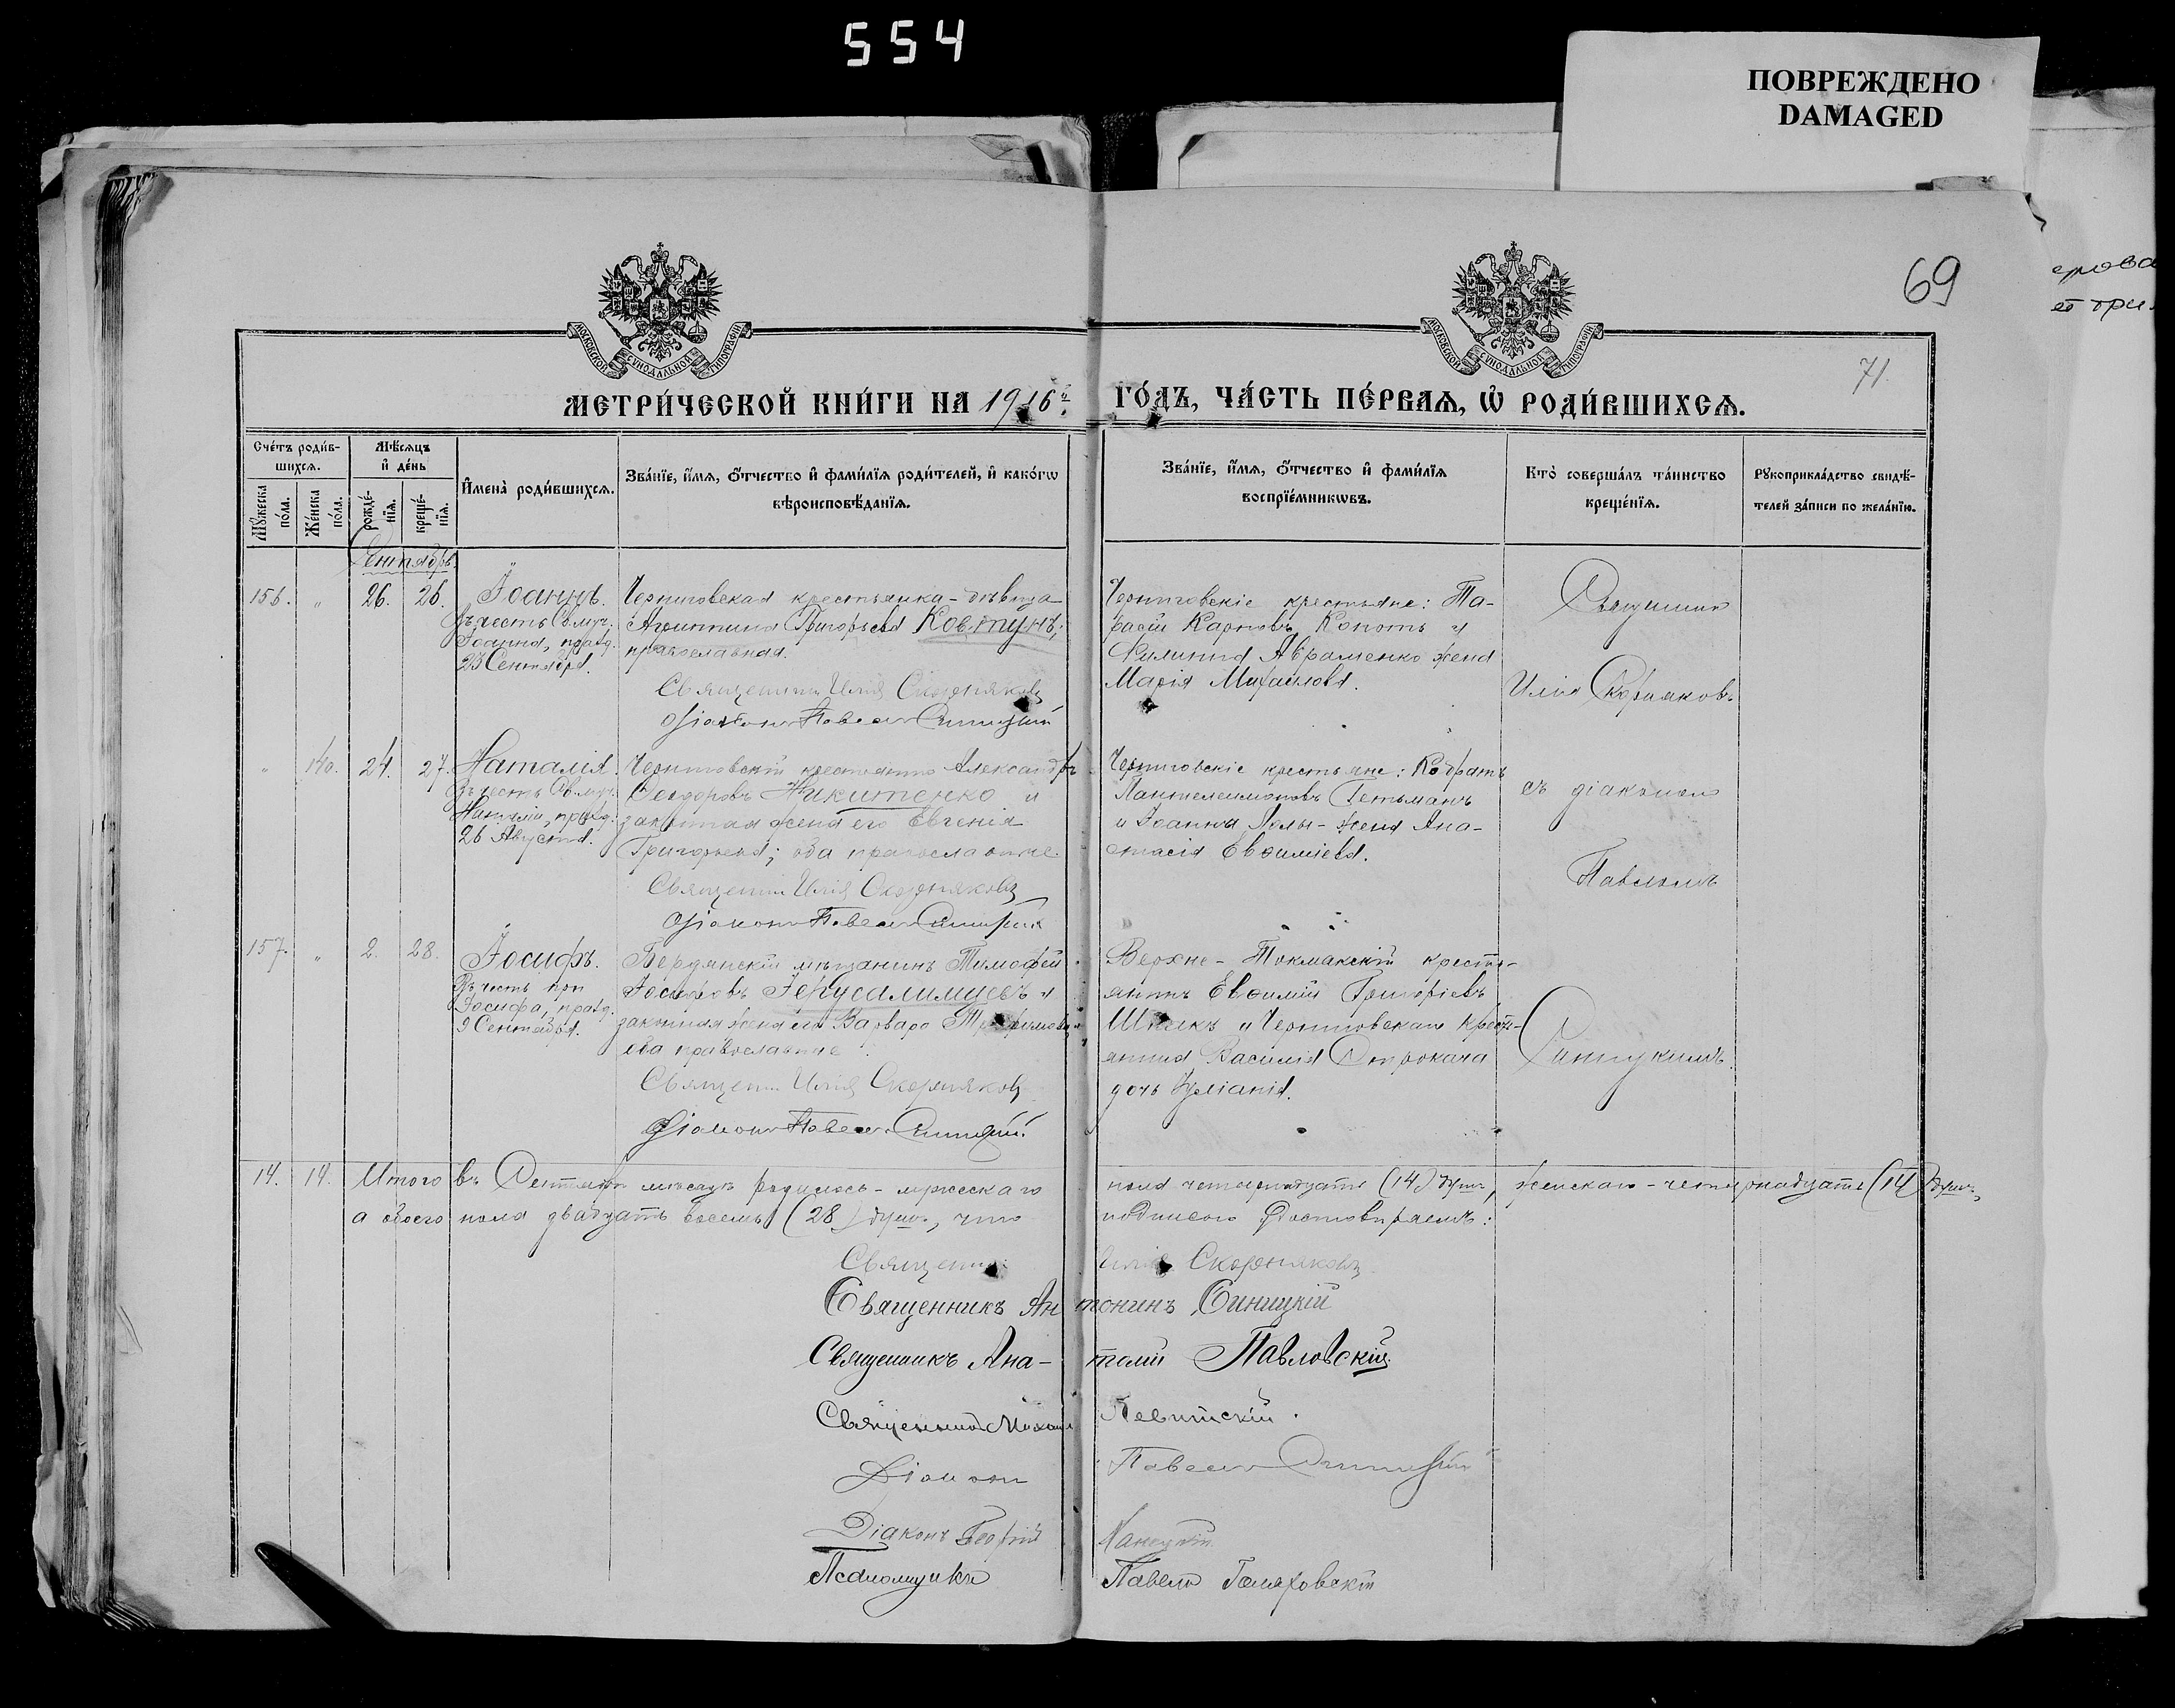 554
ПОВРЕЖДЕНО
DAMAGED
69
71
МОСКОВСКОЙ СѴНОДАЛЬНОЙ ТИПОГРАФІИ
МОСКОВСКОЙ СѴНОДАЛЬНОЙ ТИПОГРАФІИ
МЕТРИ́ЧЕСКОЙ КНИ́ГИ НА 1916й ГО́ДЪ, ЧА́СТЬ ПЕ́РВАѦ, Ѡ҆ РОДИ́ВШИХСѦ.
Сче́тъ роди́в-
шихсѧ.
Мꙋ́жеска по́ла.
Же́нска по́ла.
Мѣ́сѧцъ
и҆ де́нь
рожде́-
нїѧ.
креще́-
нїѧ.
И҆мена̀ роди́вшихсѧ.
Зва́нїе, и҆́мѧ, ѻ҆́тчество и҆ фами́лїѧ роди́телей, и҆ како́гѡ
вѣроисповѣ́данїѧ.
Зва́нїе, и҆́мѧ, ѻ҆́тчество и҆ фами́лїѧ
воспрїе́мникѡвъ.
Кто̀ соверша́лъ та́инство
креще́нїѧ.
Рꙋкоприкла́дство свидѣ́-
телей за́писи по жела́нїю.
Сентябрь.
156. " 26. 26. Іоаннъ.
Въ честь Св. муч.
Іоанна, празд.
23 Сентября.
Черниговская крестьянка-дѣвица
Агриппина Григорьева Ковтунъ;
православная.
Священникъ Илія Скорняковъ
Діаконъ Павелъ Синицкій
Черниговскіе крестьяне: Та-
расій Карповъ Копоть и
Филиппа Авраменко жена
Марія Михайлова.
Священникъ
Илія Скорняковъ
" 140. 24. 27. Наталія.
Въ честь Св. муч.
Наталіи, празд.
26 Августа.
Черниговскій крестьянинъ Александръ
Ѳеодоровъ Никитенко и
законная жена его Евгенія
Григорьева; оба православные.
Священникъ Илія Скорняковъ
Діаконъ Павелъ Синицкій
Черниговскіе крестьяне: Кодратъ
Пантелеимоновъ Гетьманъ
и Іоанна Лолы-жена Ана-
стасія Евѳиміева.
съ діакономъ
Павломъ
157. " 2. 28. Іосифъ.
Въ честь прп
Іосифа, празд.
9 Сентября.
Бердянскій мѣщанинъ Тимофей
Іосифовъ Іерусалимцевъ и
законная жена его Варвара Трофимова
оба православные.
Священникъ Илія Скорняковъ
Діаконъ Павелъ Синицкій.
Верхне-Токмакскій кресть-
янинъ Евѳимій Григоріевъ
и Черниговская кресть-
янина Василія Строкача
дочь Іуліанія.
Синицкимъ.
14. 14. Итого въ Сентябрѣ мѣсяцѣ родилось-мужескаго пола четырнадцать (14) душъ, женскаго-четырнадцать (14) душъ,
а обоего пола двадцать восемь (28) душъ, что подписомъ удостовѣряемъ:
Священникъ Илія Скорняковъ
Священникъ Антонинъ Синицкій
Священникъ Ана-толій Павловскій
Священникъ Михаилъ Левитскій.
Діаконъ Павелъ Синицкій
Діаконъ Георгій
Псаломщикъ Павелъ